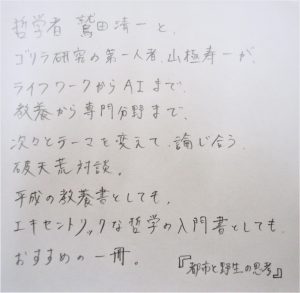 哲学者 鷲田清一と、
ゴリラ研究の第一人者、山極寿一が、
ライフワークからAIまで、
教養から専門分野まで、
次々とテーマを変えて、論じ合う、
破天荒対談。
平成の教養書としても、
エキセントリックな哲学の入門書としても、
おすすめの一冊。
『都市と野生の思考』